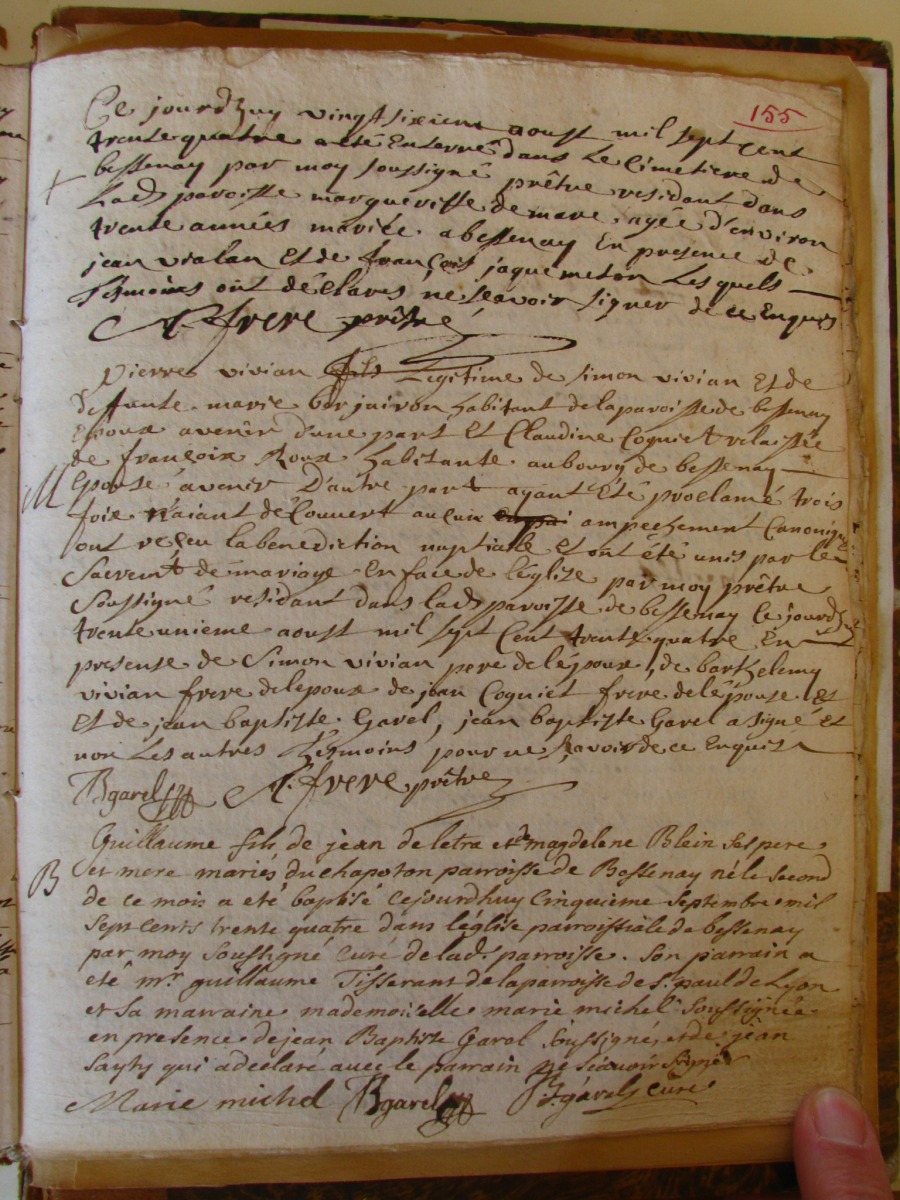 155
Ce jourdhuy vingtsixiem aoust mil sept cent
trente quatre a eté Enterré dans Le Cimetiere de
bessenay par moy soussigné prêtre residant dans
Lad paroisse margueritte demare agée d'environ
trente années mariée a bessenay En presence de
jean vialan Et de françois jaquemeton Lesquels
témoins ont déclarés ne sçavoir signer de ce Enquis
A. frere prêtre
Pierre vivian fils Legitime de simon vivian Et de
deffunte marie berjairon habitant de la paroisse de bessenay
Epoux avenir d'une part Et Claudine Coquiet relaissée
M
de françoix Roux habitante au bourg de bessenay
Epouse avenir D'autre part ayant Eté proclamé trois
foix n'aiant découvert aucun ampechement Canonique
ont reçeu la benediction nuptialle Et ont été unis par le
Sacremt de mariage En face de L'église par moy prêtre
Soussigné residant dans lad paroisse de bessenay Ce jourdhuy
trente unieme aoust mil sept Cent trente quatre En
presense de Simon vivian pere de l'époux, de barthelemy
vivian frere de lepoux de jean Coquiet frere de lépouse Et
Et de jean baptiste Garel, jean baptiste Garel a signé Et
non Les autres témoins pour ne sçavoir de ce Enquis
JBgarel A. frere prêtre
Guillaume fils de jean de letra et de magdelene Blein ses pere
B
et mere mariés du chapoton parroisse de Bessenay né le second
de ce mois a eté baptisé cejourdhuy cinquieme septembre mil
sept cents trente quatre dans léglise parroissiale de bessenay
par moy soussigné curé de lad. parroisse. Son parrain a
eté mr. guillaume Tisserant de la parroisse de st. paul de Lyon
et sa marraine mademoiselle marie michel soussignée
en presence de jean Baptiste Garel soussigné, et de jean
qui a declaré avec le parrain ne sçavoir signer
Marie michel JBgarel garel curé